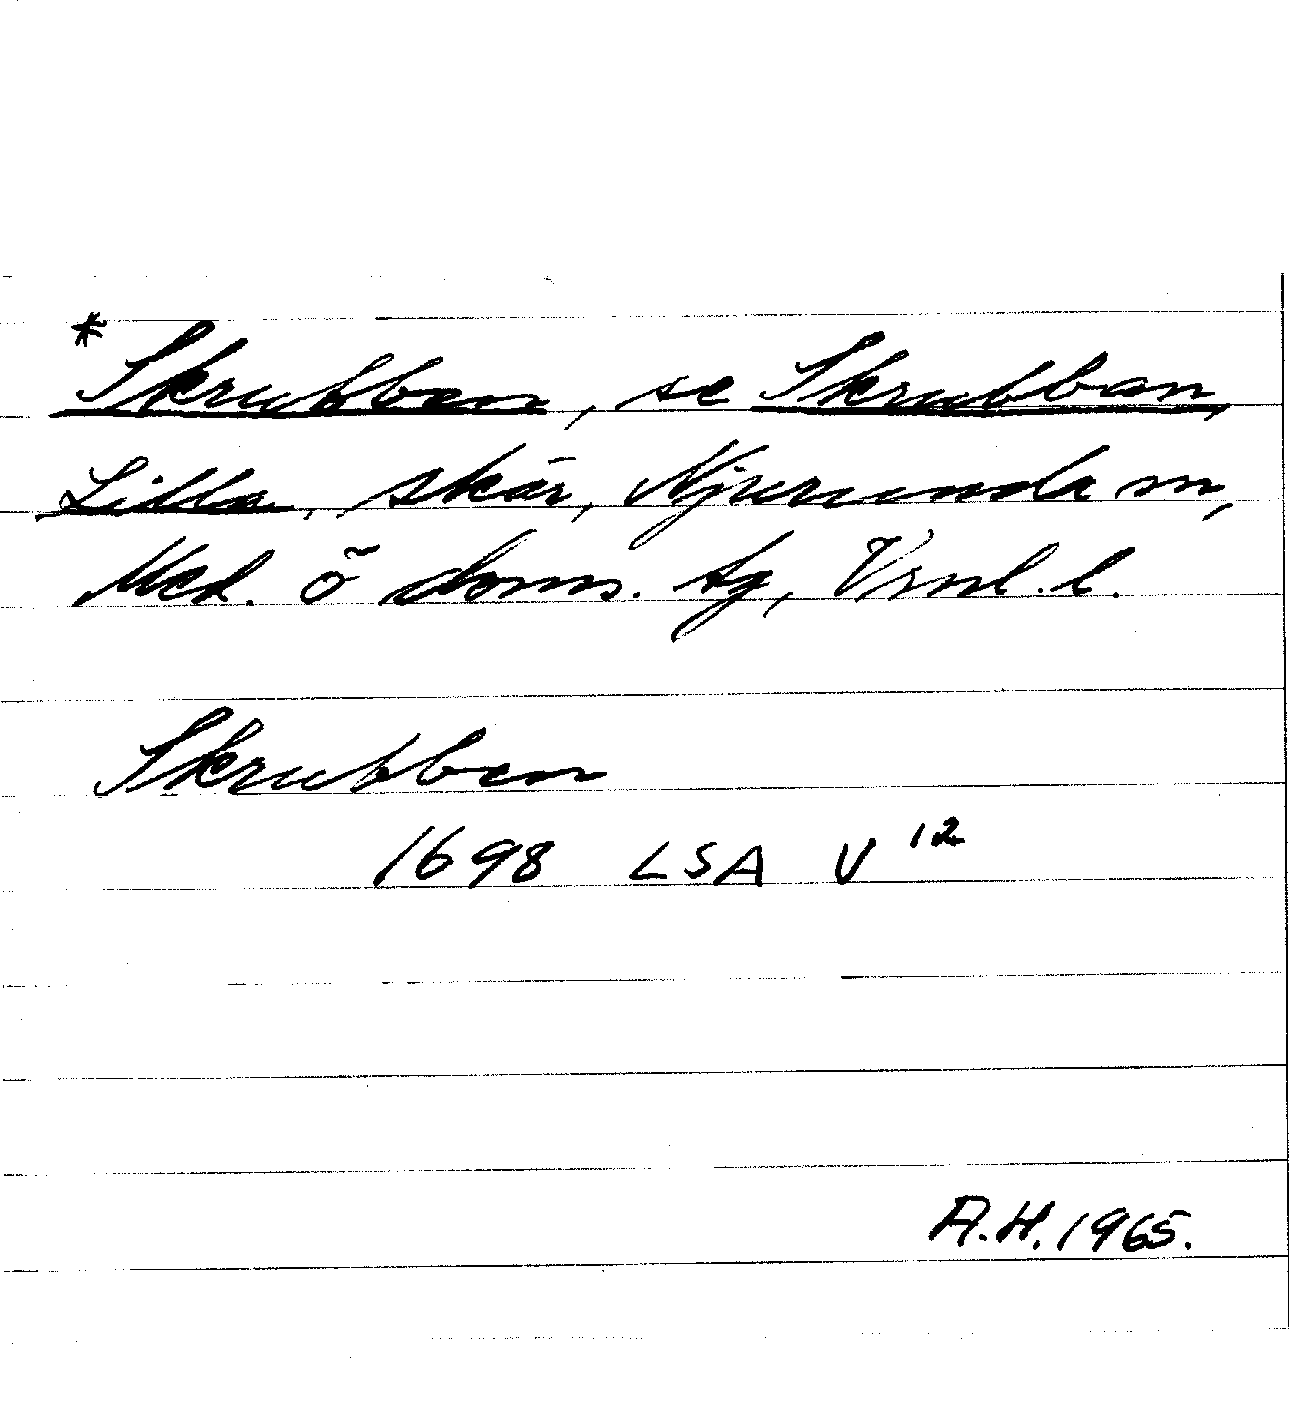 *Skrubben, se Skrubban,
Lilla, skär, Njurunda sn,
Med. ö doms. tg, Vrnl. l.
Skrubben
1698 LSA V 12
A.H. 1965.